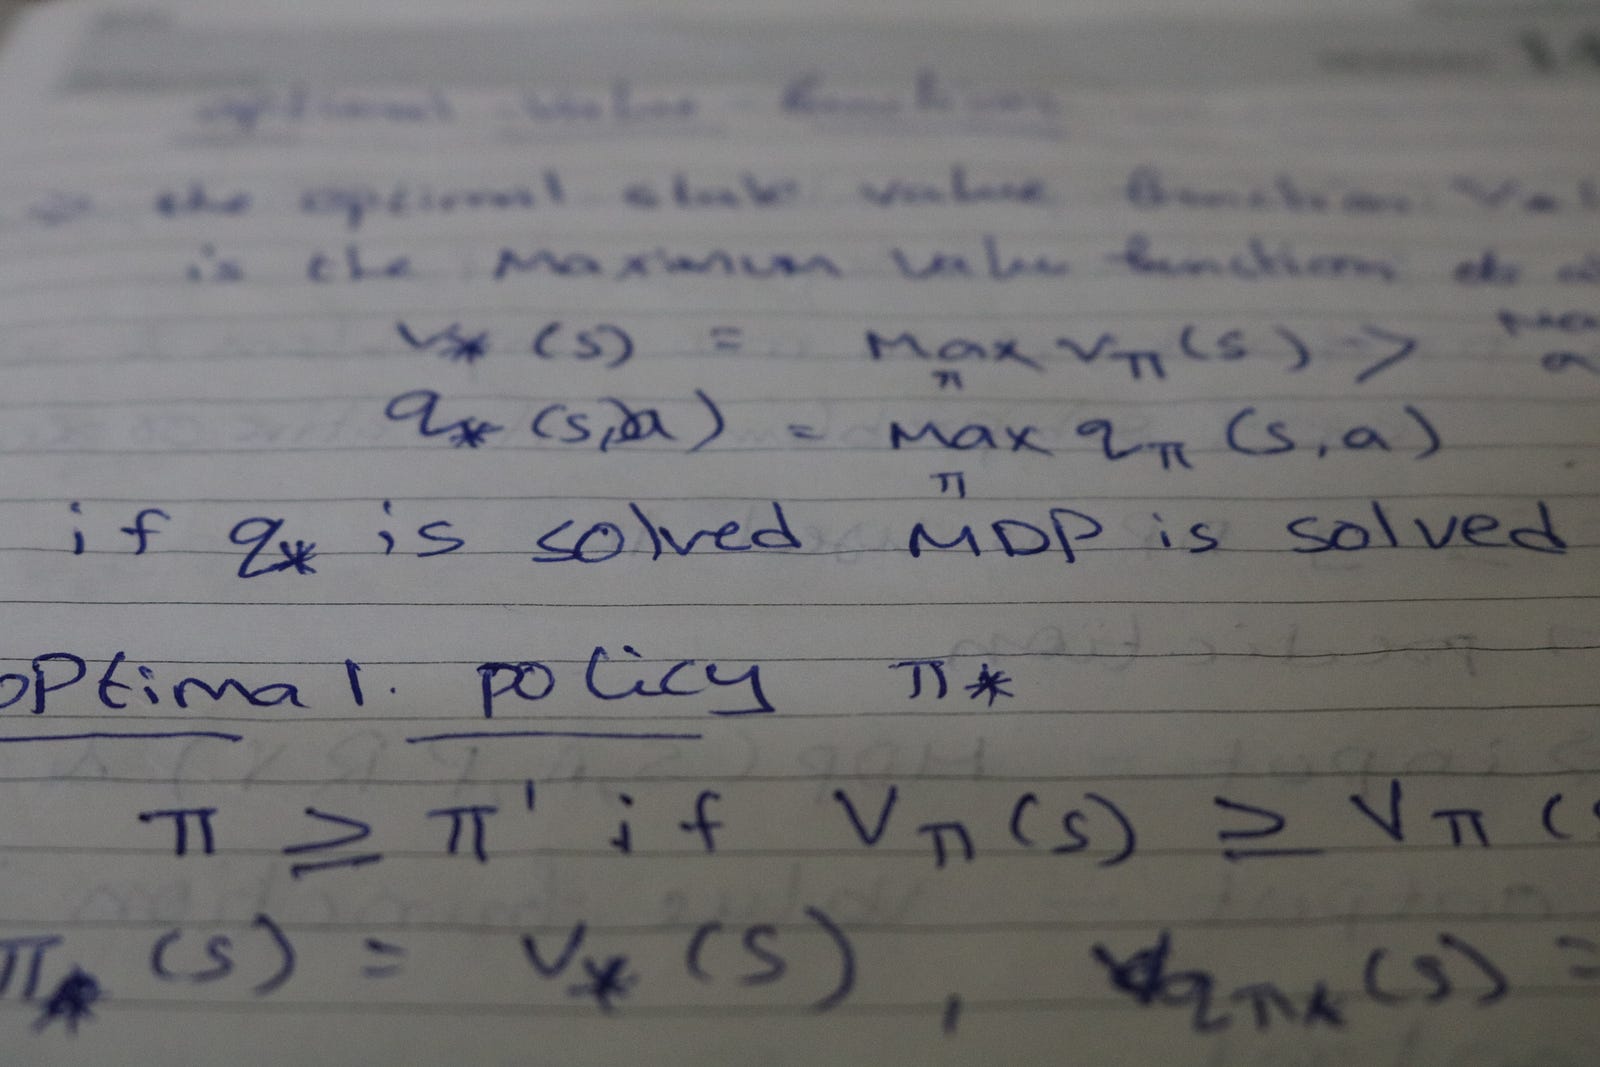 optimal value function
the optimal state value function
is the maximum value function
v* (s) = max v_π (s) ->
π
q* (s,a) = max q_π (s, a)
π
if q* is solved MDP is solved
optimal policy π*
π ≥ π' if V_π (s) ≥ V_π (s
π* (s) = v* (s) , q_π* (s) =